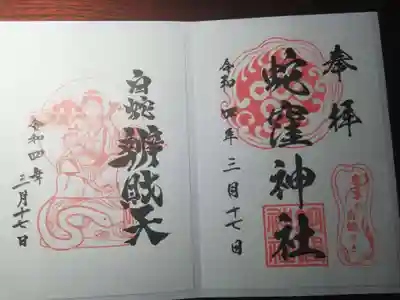 奉拝
蛇窪神社
令和四年
三月十七日
白蛇辨財天
令和四年
三月十七日